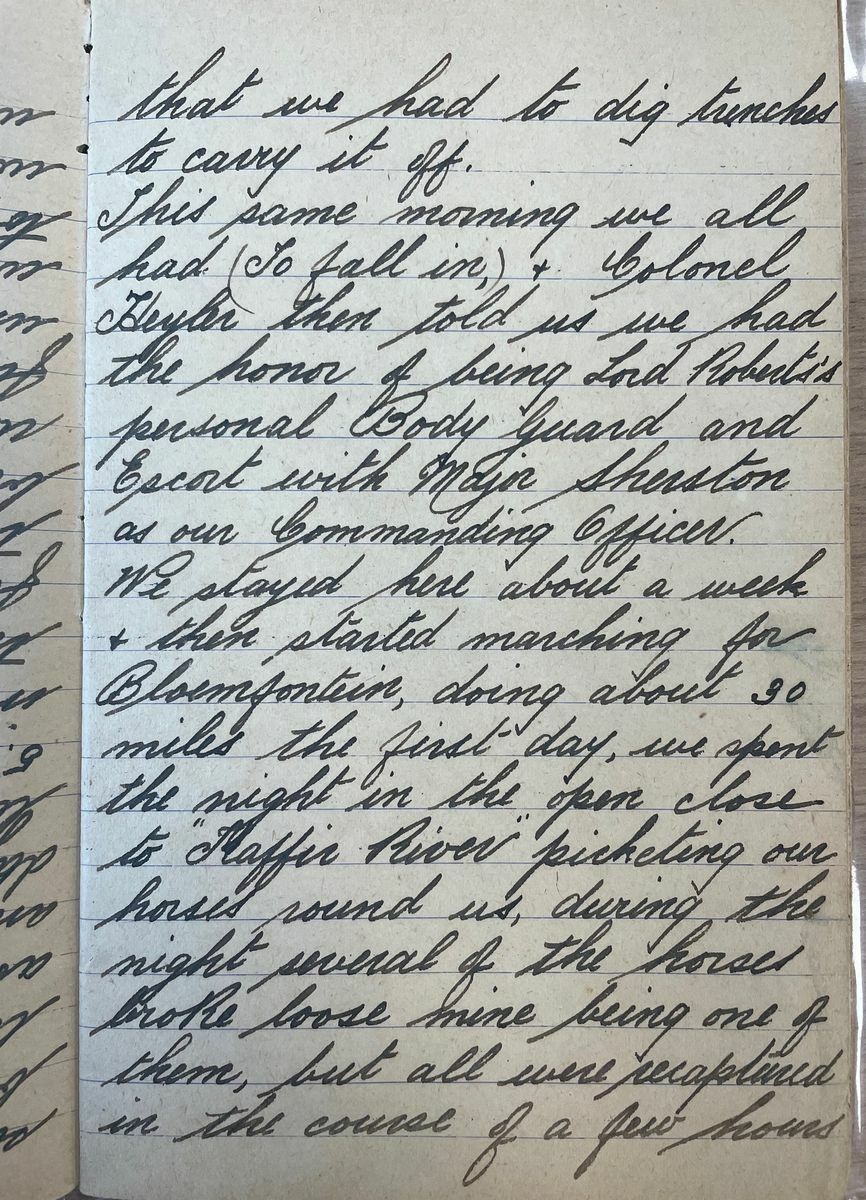 that we had to dig trenches
to carry it off.
This same morning we all
had (To fall in,) + Colonel
then told us we had
the honor of being Lord Roberts's
personal Body Guard and
Escort with Major Sherston
as our Commanding Officer.
We stayed here about a week
+ then started marching for
Bloemfontein, doing about 30
miles the first day, we spent
the night in the open close
to "Kaffir River" picketing our
horses round us, during the
night several of the horses
broke loose mine being one of
them, but all were recaptured
in the course of a few hours